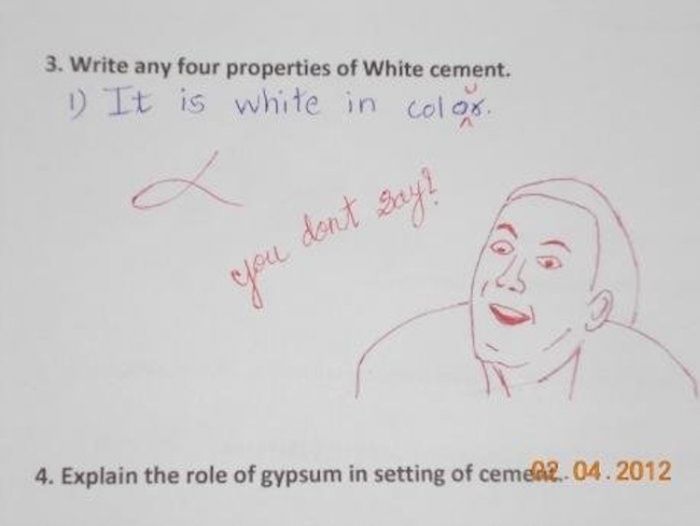 3. Write any four properties of White cement.
u
1) It is white in color.
^
you dont say?
4. Explain the role of gypsum in setting of cement.
02.04.2012